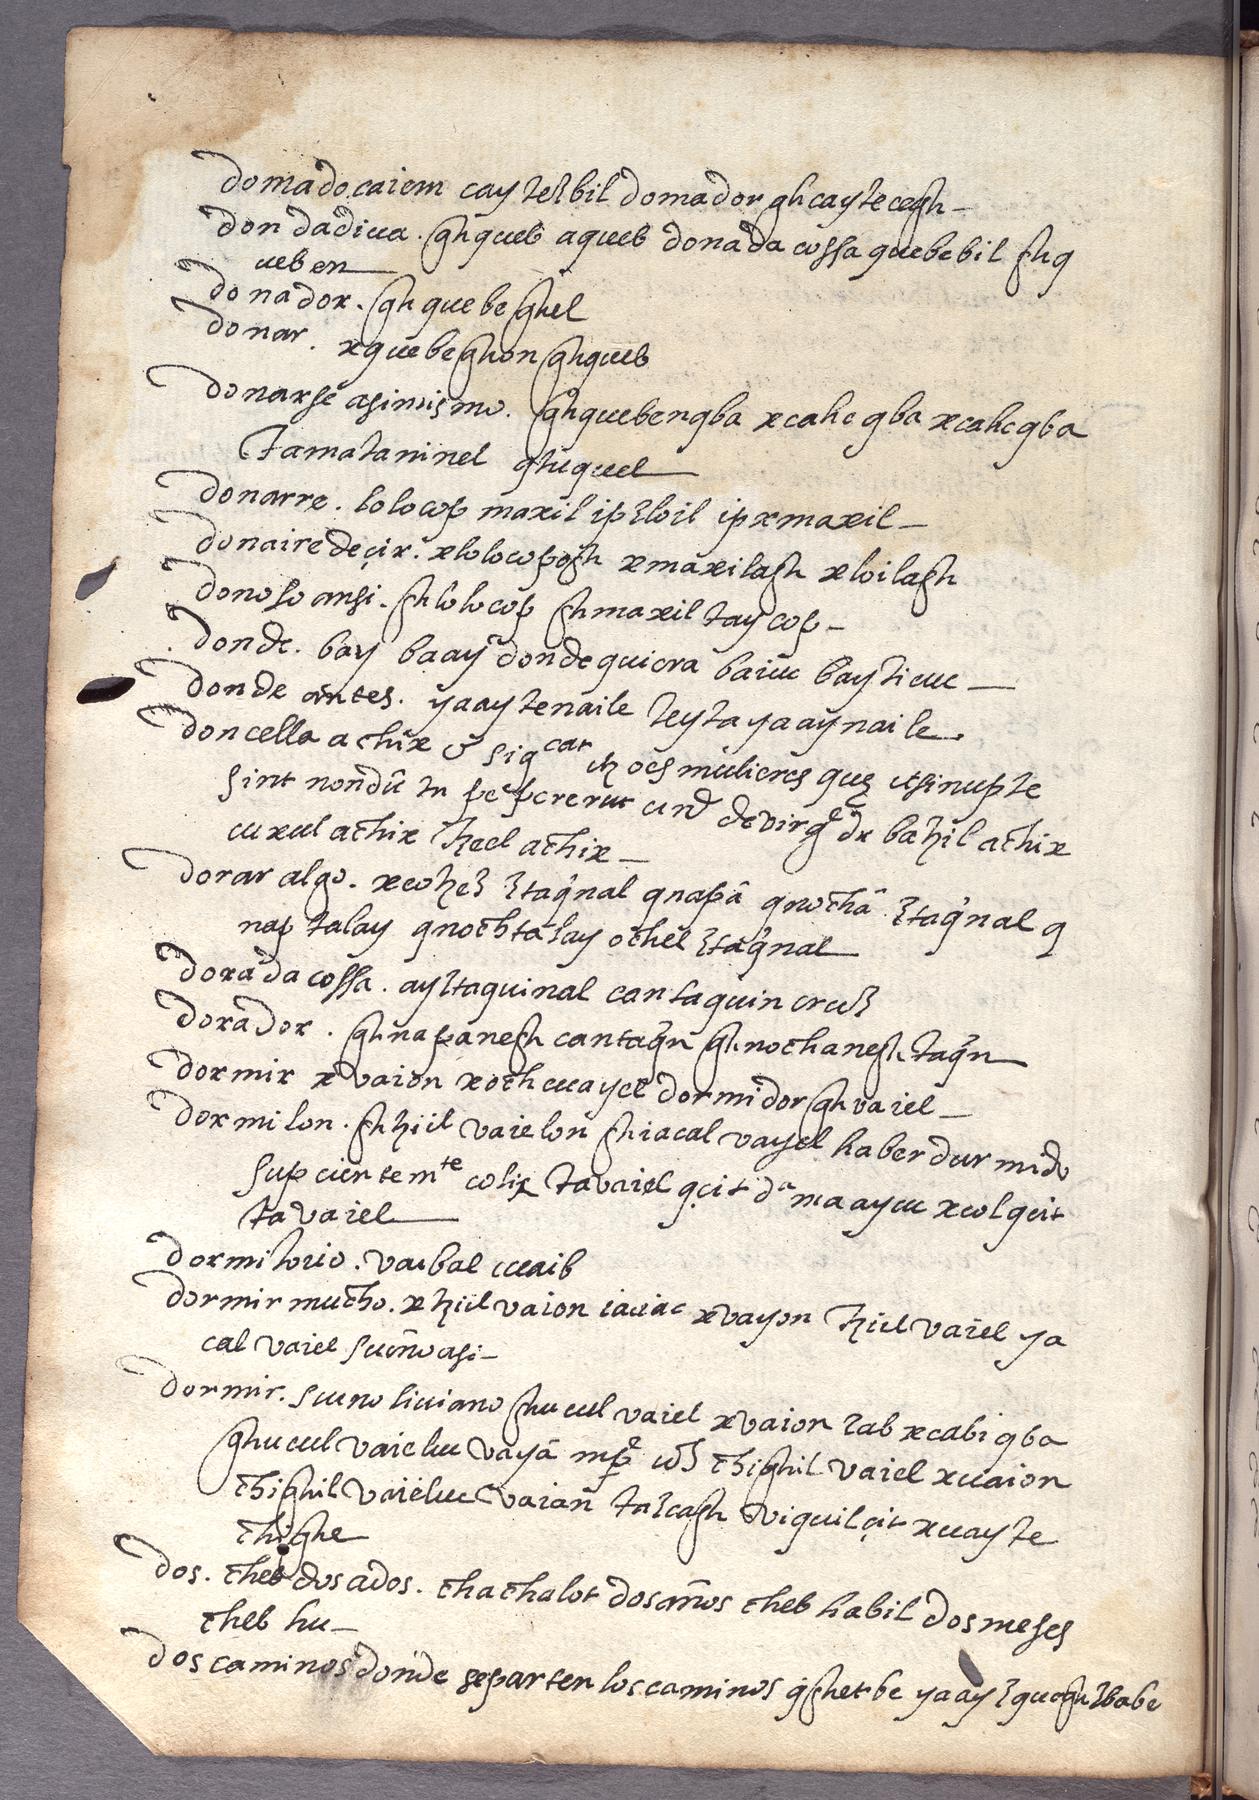 domado. caiem cayteɬbil domador ghcaytecegh
don dadiua. ghqueb aqueb donada cossa quebebil ghq
ueben
donador. ghquebeghel
donar. xquebeghon ghqueb
donarse asimismo. ghquebenqba xcahc qba xcahcqba
tamataninel ghuquel
donarre. lolocop maxil ipɬloil ipxmaxil
donaire deçir. xlolocopogh xmaxilagh xloilagh
donoso ansi. ghlolocop ghmaxil taycop
donde. bay baay donde quiera baiuc bayticuc
donde antes. yaaytenaile teyta yaaynaile.
doncella achix sigcat oēs mulieres que etsi nupte
sint nondū tn pepererut de virge dr bahil achix
uxul achix tzeel achix
dorar algo. xcohes staq̄nal qnapā qnochā staq̄nal q
nap talay qnochtalay ochel staq̄nal
dorada cossa. aystaquinal cantaquin
dorador. ghnapanegh cantaq̄n ghnochanegh taq̄n
dormir xvaion xochuuayel dormidor ghvaiel
dormilon. ghhiil vaielon ghiacal vayel haber durmido
sup cientemte tavaiel qçit maayuc xcolqçit
tavaiel
dormitorio. vaibal uuaib
dormir mucho. xhiilvaion xvayon hiilvaiel ya
cal vaiel
dormir. sueno liuiano ghuuul vaiel xvaion xcabiqba
ghuuul vaieluc vayā chighil vaiel xuaion
chighil vaieluc vaian talcagh viquilçit xuayte
chighe
dos. cheb dos ados. chachalot dos años cheb habil dos meses
cheb hu
dos caminos donde se parten los caminos qghetbe yaay